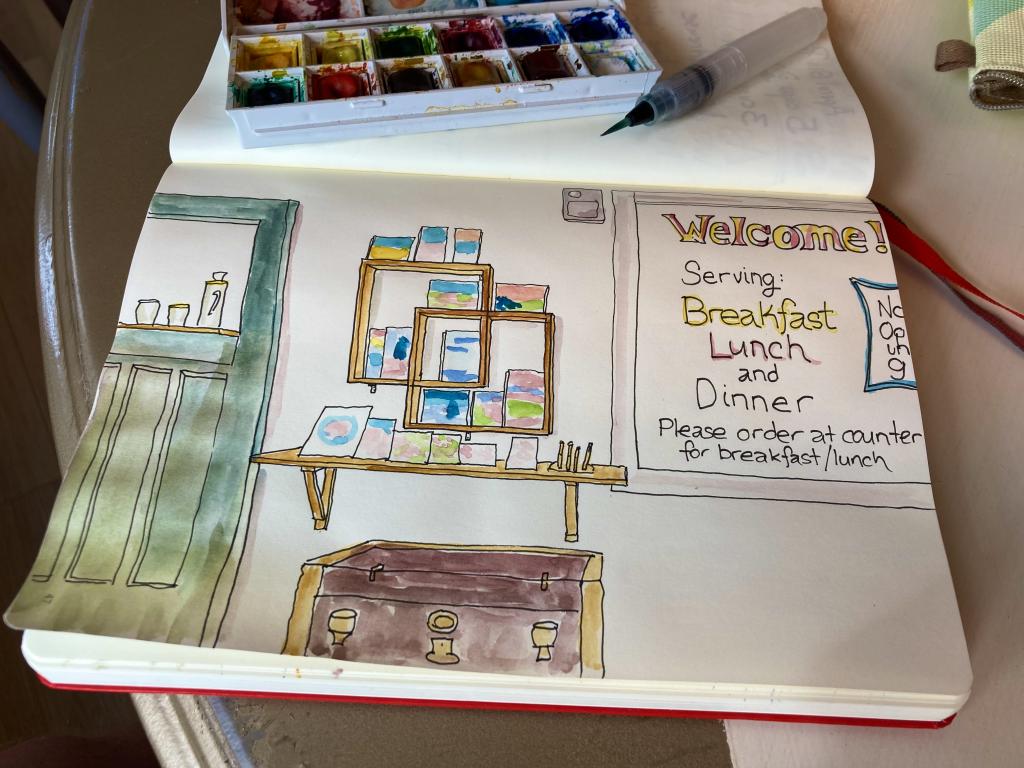 Welcome!
Serving:
Breakfast
Lunch
and
Dinner
Please order at counter
for breakfast/lunch